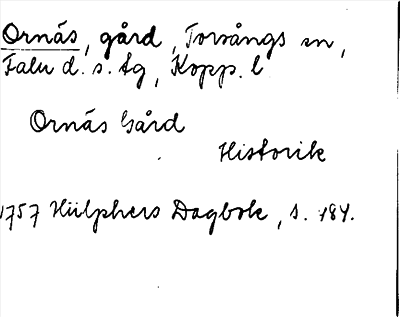 Ornäs, gård, Torsångs sn,
Falu d. s. tg, Kopp. l
Ornäs Gård
Historik
1757 Hülphers Dagbok, s. 184.